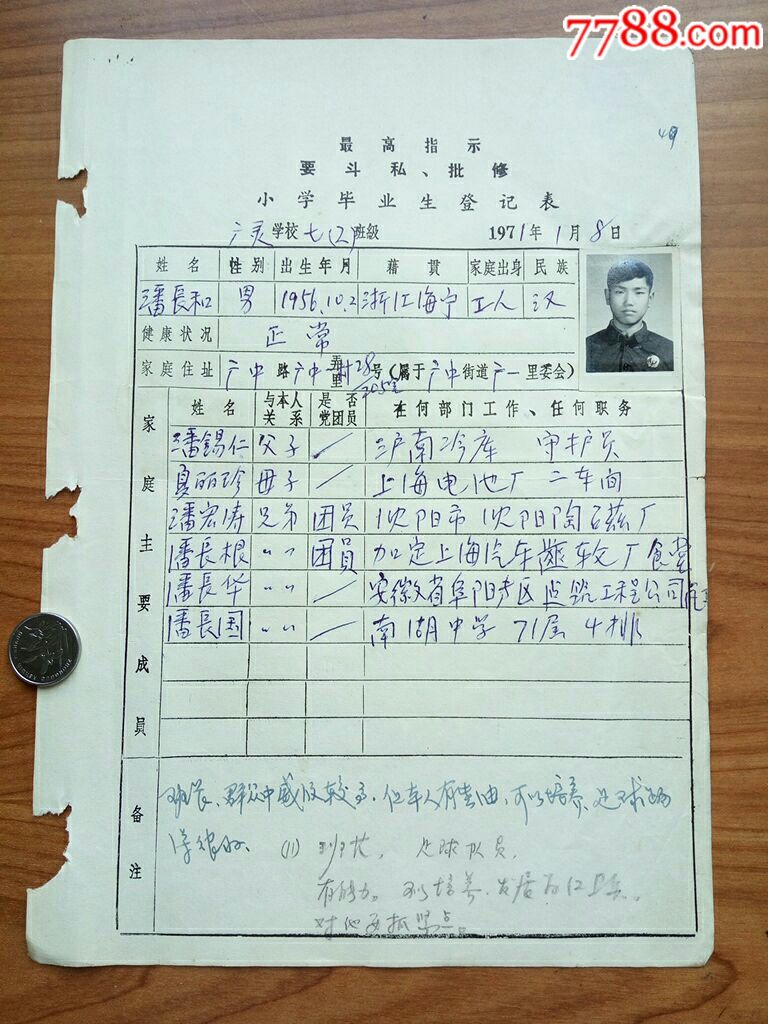 7788.com
49
最高指示
要斗私、批修
小学毕业生登记表
广灵学校七(2)班级 1971年1月8日
姓名 性别 出生年月 籍贯 家庭出身 民族
潘長和 男 1956.10.2 浙江海宁 工人 汉
健康状况 正常
家庭住址 广中路广中一村弄里28号(属于广中街道广一里委会)
205室
家庭主要成员
姓名 与本人关系 是否党团员 在何部门工作、任何职务
潘錫仁 父子 / 沪南冷库 守护员
夏丽珍 母子 / 上海电池厂 二车间
潘宏涛 兄弟 团员 沈阳市沈阳陶瓷厂
潘長根 〃 团员 加定上海汽车 厂食堂
潘長华 〃 / 安徽省阜阳专区 工程公司
潘長国 〃 / 南湖中学 71届 4排
备注
班长、群众中威 较高,但本人有 ,可以培养、足球
(11) 班长, 足球队员,
有能力。可以培养,发展为红卫兵。
对他要抓紧点。